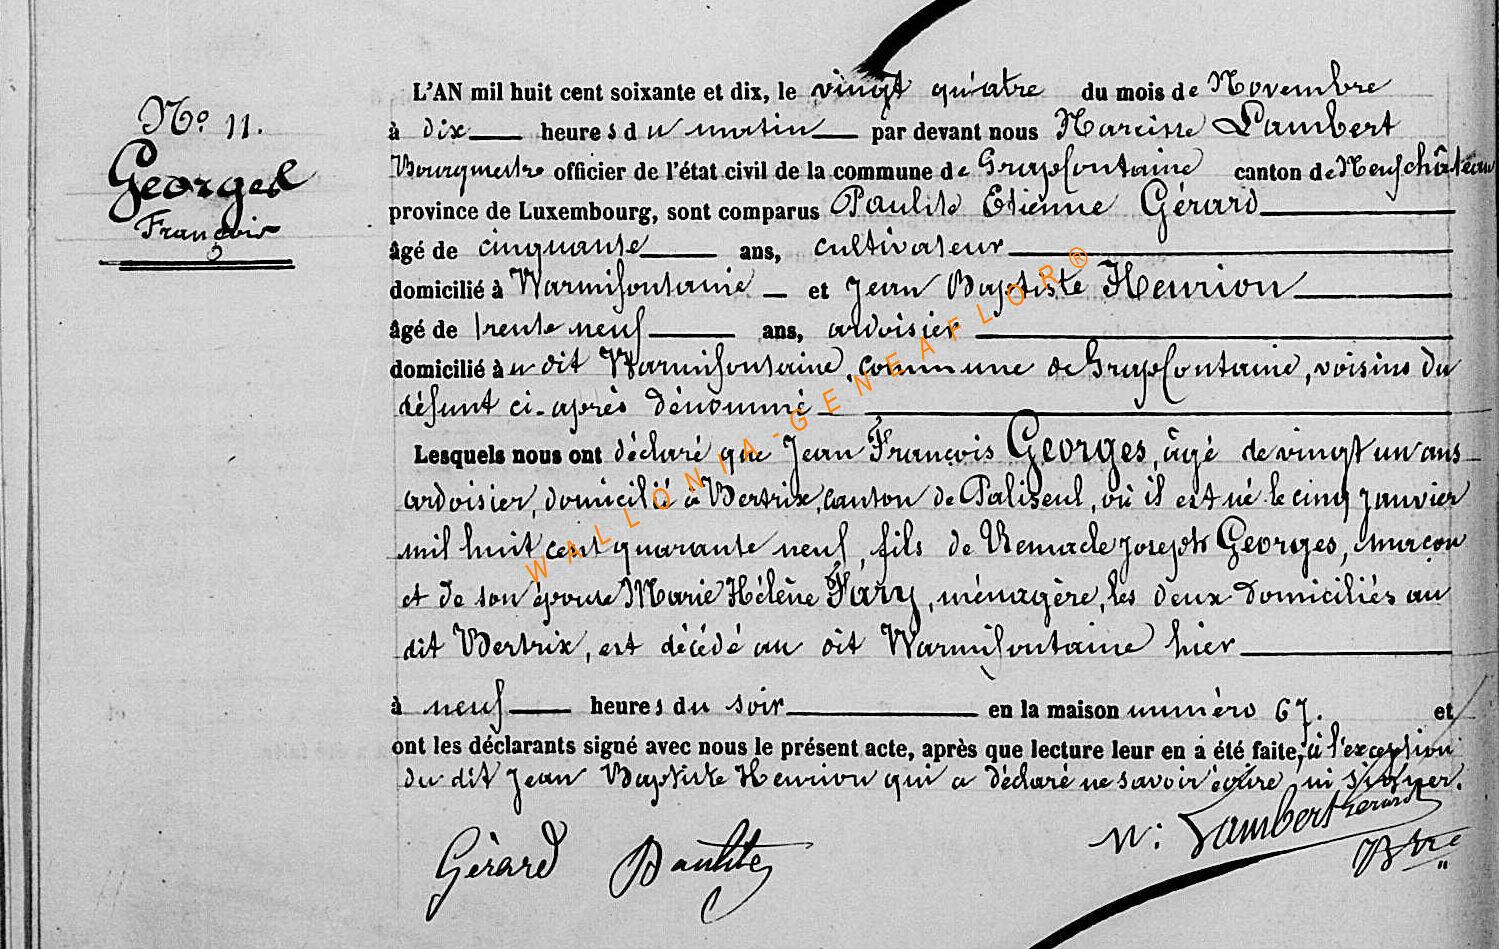 N.o 11.
Georges
François
L'AN mil huit cent soixante et dix, le vingt quatre du mois de Novembre
à dix heures du matin par devant nous Narcisse Lambert
Bourgmestre officier de l'état civil de la commune de Grapfontaine canton de Neufchâteau
province de Luxembourg, sont comparus Paulite Etienne Gérard
âgé de cinquante ans, cultivateur
domicilié à Warmifontaine et Jean Baptiste Henrion
âgé de trente neuf ans, ardoisier
domicilié au dit Warmifontaine, commune de Grapfontaine, voisins du
défunt ci-après dénommé
Lesquels nous ont déclaré que Jean François Georges, âgé de vingt un ans
ardoisier, domicilié à Bertrix, canton de Paliseul, où il est né le cinq janvier
mil huit cent quarante neuf, fils de Remacle Joseph Georges, maçon
et de son épouse Marie Hélène Fary, ménagère, les deux domiciliés au
dit Bertrix, est décédé au dit Warmifontaine hier
à neuf heures du soir en la maison numéro 67. et
ont les déclarants signé avec nous le présent acte, après que lecture leur en a été faite, à l'exception
du dit Jean Baptiste Henrion qui a déclaré ne savoir écrire ni signer.
Gérard Paulite N: Lambert Gerard
Btre
WALLONIA-GENEAFLOR®